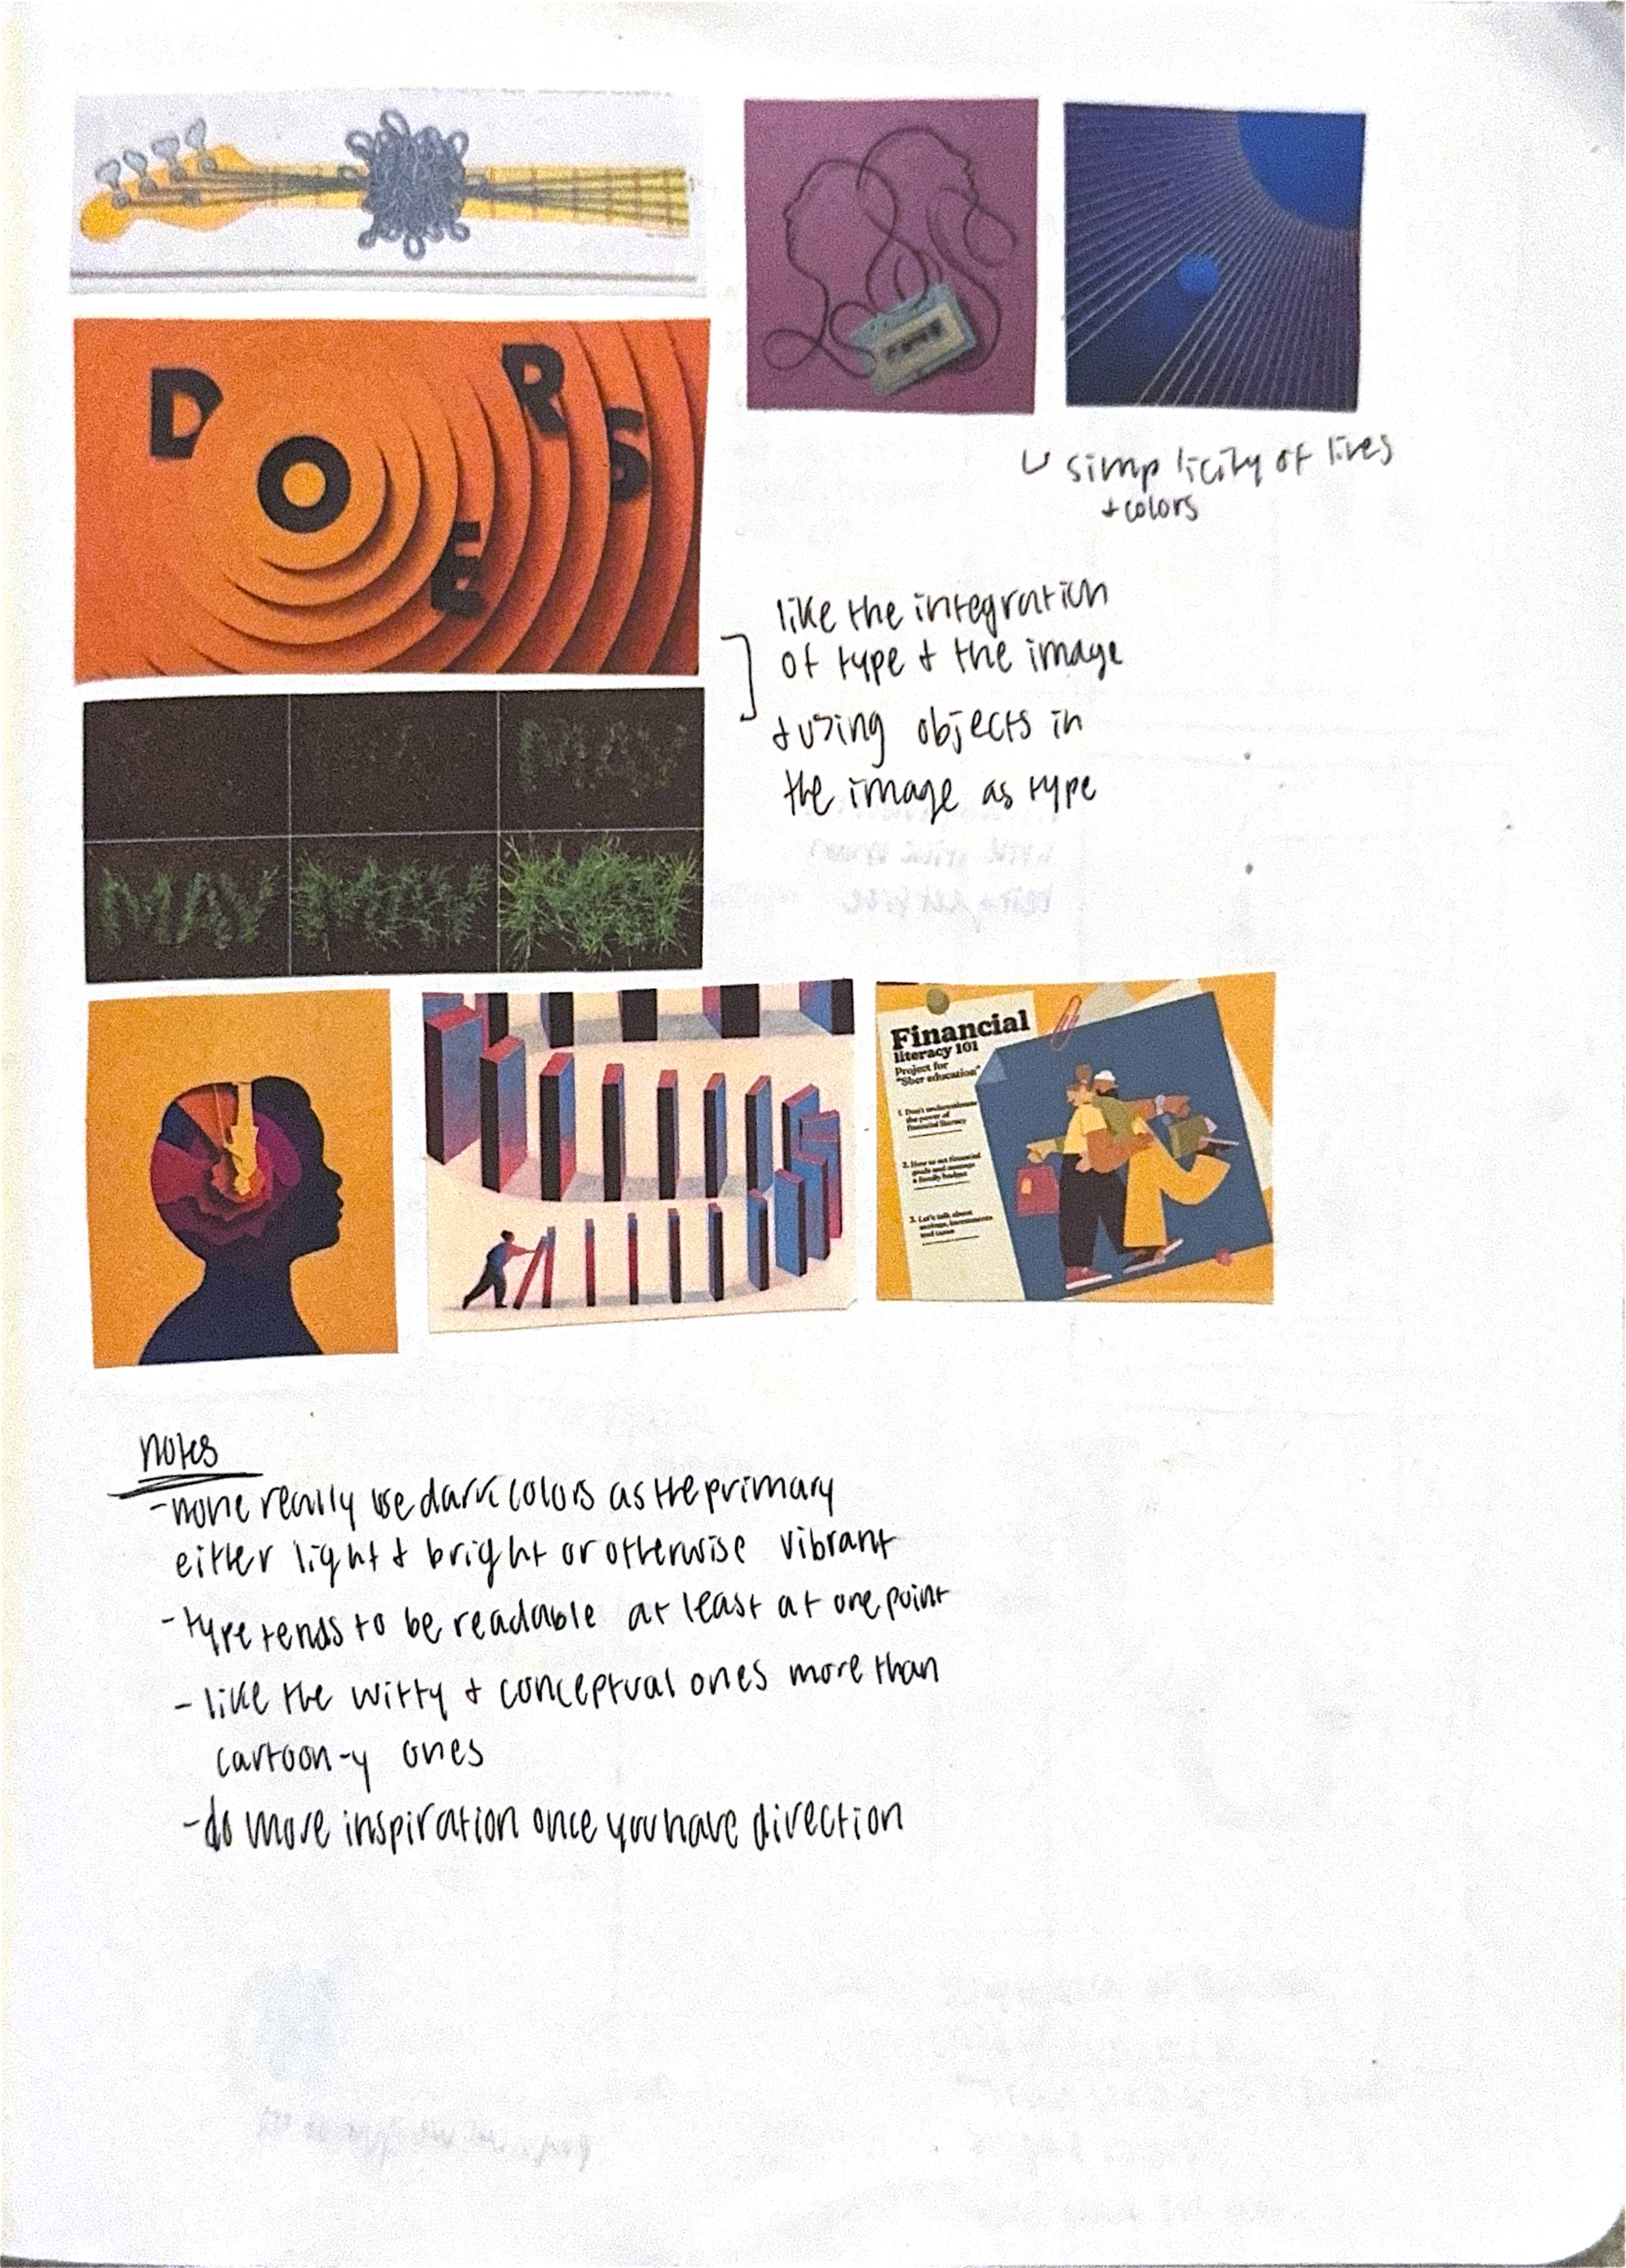 D O E R S
simplicity of lines
+ colors
like the integration
of type + the image
+ using objects in
the image as type
MAY
Financial
literacy 101
Project for
"Sber education"
1. Don't underestimate
the power of
financial literacy
2. How to set financial
goals and manage
a family budget
3. Let's talk about
savings, investments
and taxes
notes
- none really use dark colors as the primary
either light + bright or otherwise vibrant
- type tends to be readable at least at one point
- like the witty + conceptual ones more than
cartoon-y ones
- do more inspiration once you have direction